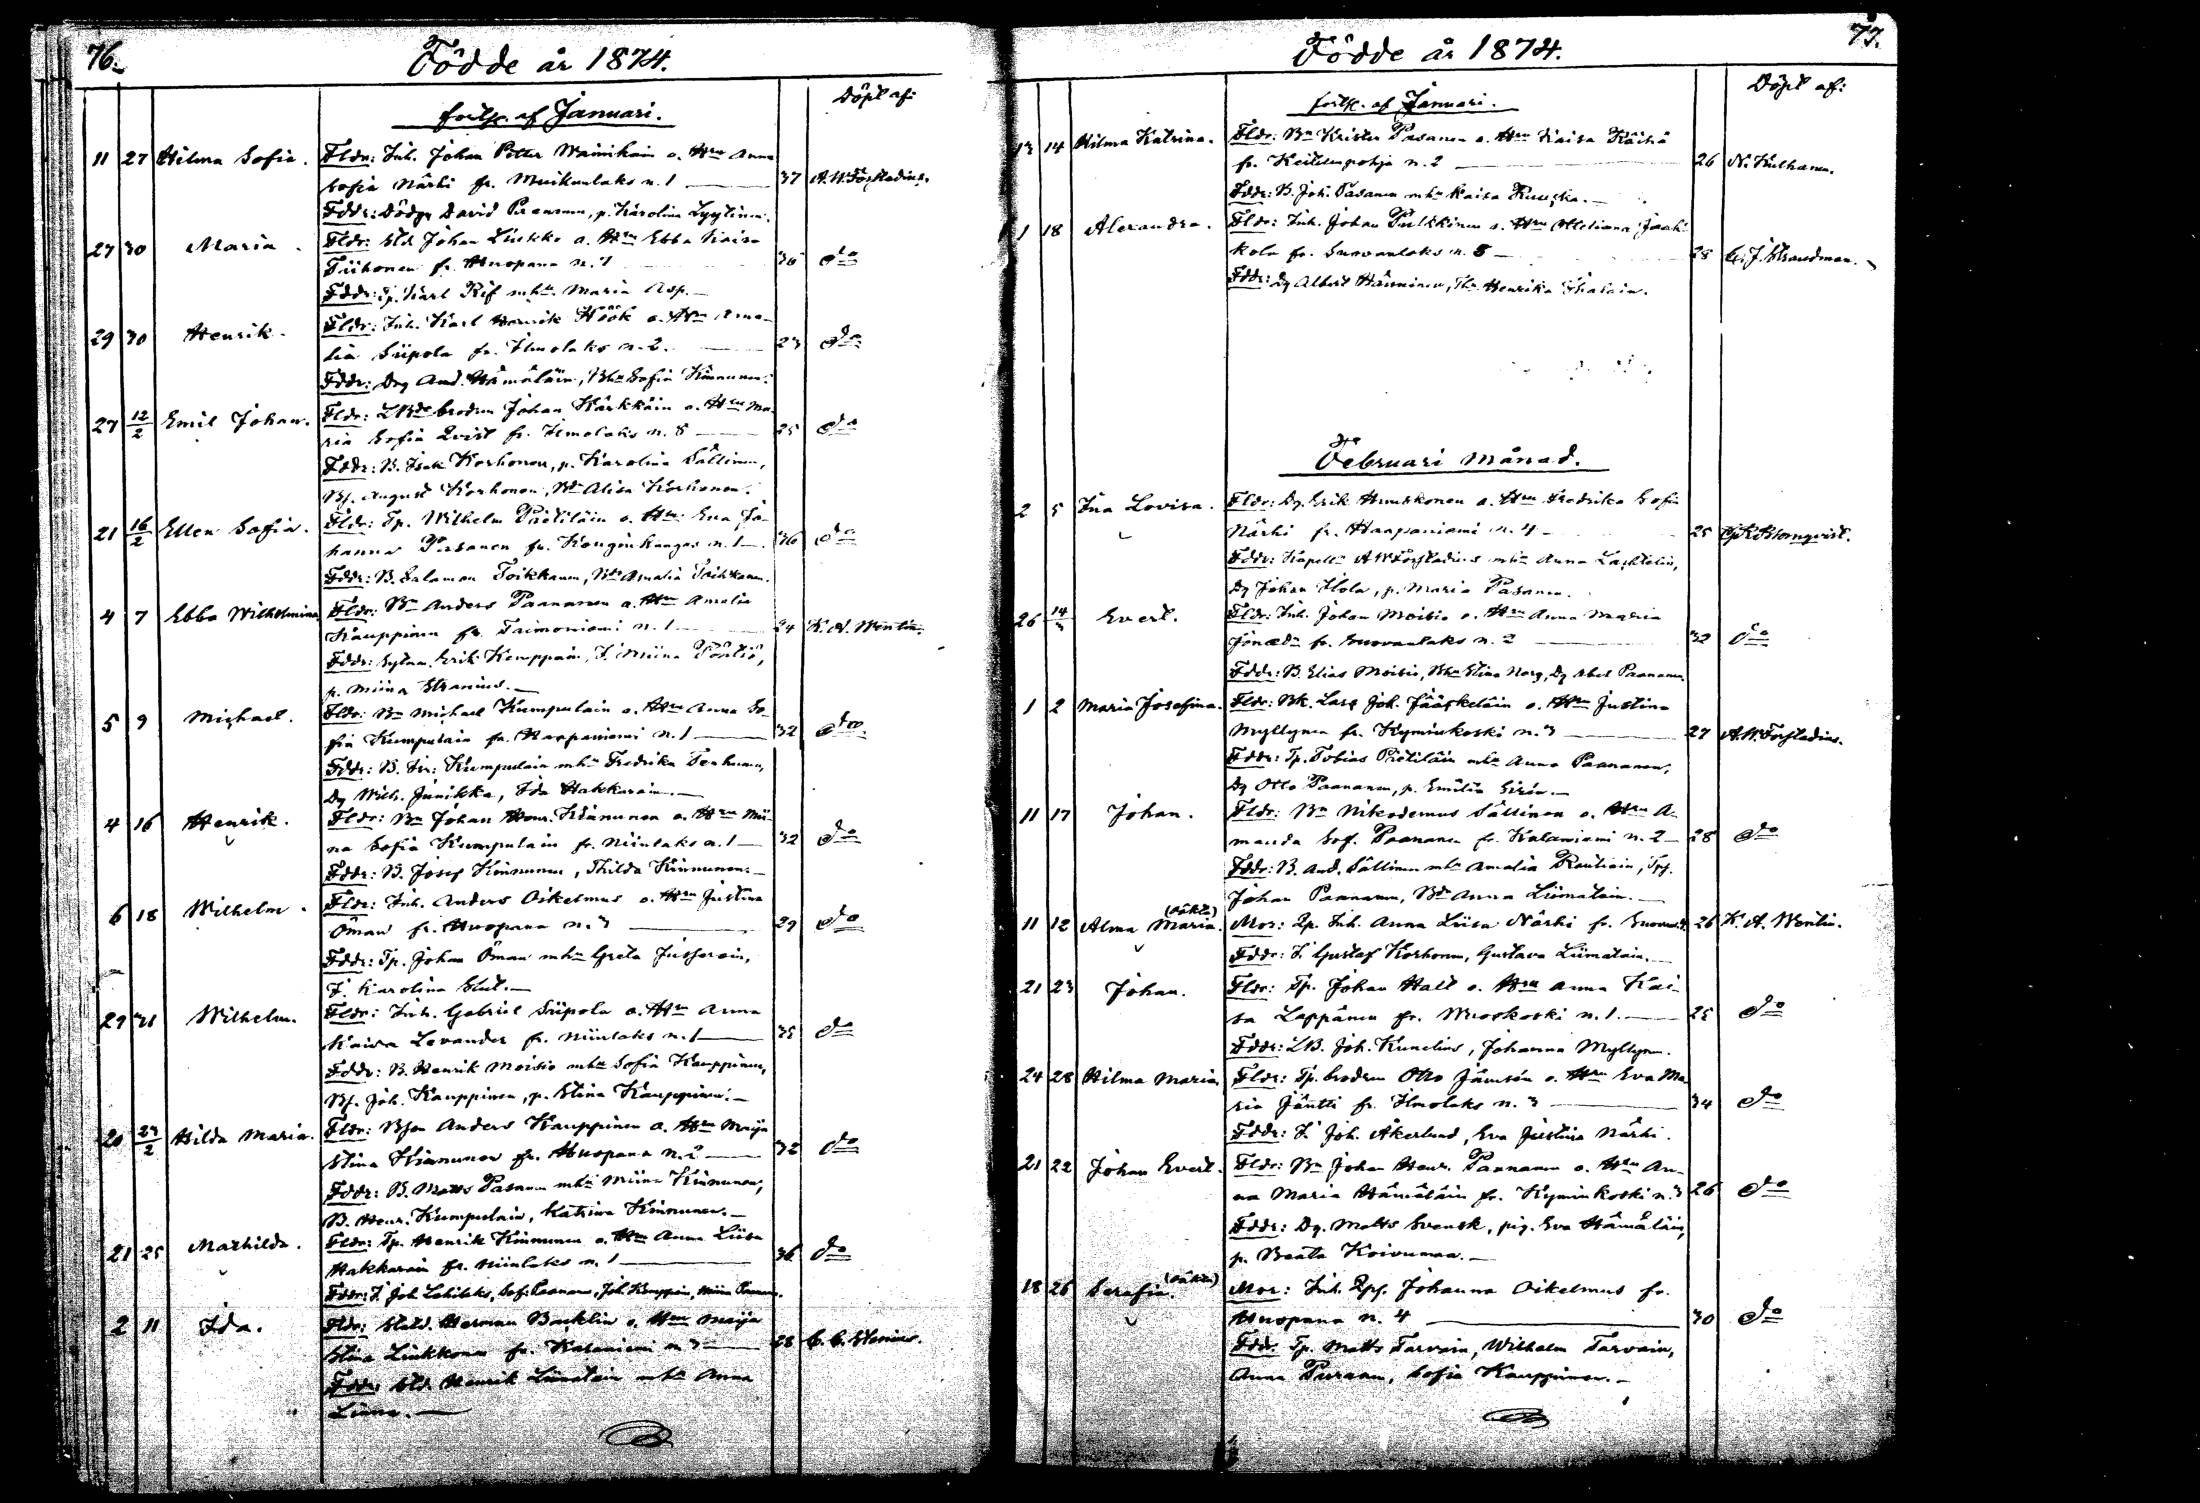 76.
Födde år 1874.
Döpt af:
forts. af Januari.
11 27 Hilma Sofia. Fldr: Inh. Johan Petter Wainikain o. Hru Anna
Sofia Närhi fr. Muikunlaks n. 1 — 37 A. W. Forstadius.
Fddr: Dödgr David Paananen, p. Karolina Lyytinen.
27 30 Maria. Fldr: Sld Johan Liukko o. Hru Ebba Kaisa
Tiihonen fr. Huopana n. 1 — 36 do
Fddr: Tp. Karl Rif m. hu Maria Asp. —
29 30 Henrik. Fldr: Inh. Karl Henrik Höök o. Hru Ama-
lia Siipola fr. Ilmolaks n. 2. — 23 do
Fddr: Drg And. Hämäläin, Bhu Sofia Kinnunen.
27 12/2 Emil Johan. Fldr: LBde brodren Johan Kärkkäin o. Hru Ma-
ria Sofia Qvist fr. Ilmolaks n. 8 — 25 do
Fddr: B. Isak Korhonen, p. Karolina Sällinen,
Bs. August Korhonen, Bdr Alisa Korhonen.
21 16/2 Ellen Sofia. Fldr: Tp. Wilhelm Pietiläin o. Hru Eva Jo-
hanna Pasanen fr. Konginkangas n. 1 — 36 do
Fddr: B. Salomon Toikkanen, Bdr Amalia Toikkanen.
4 7 Ebba Wilhelmina Fldr: Bn Anders Paananen o. Hru Amalia
Kauppinen fr. Taimoniemi n. 1 — 24 K. A. Wentin.
Fddr: Sytn. Erik Kemppain, I. Miina Pöntiö,
p. Miina Stranius. —
5 9 Michael. Fldr: Bn Michael Kumpulain o. Hru Anna So-
fia Kumpulain fr. Haapaniemi n. 1 — 32 do
Fddr: B. Kumpulain m. hu Fredrika Tenhunen,
Dg Wilh. Junikka, Ida Hakkarain. —
4 16 Henrik. Fldr: Bn Johan Henr. Kinnunen o. Hru Mii-
na Sofia Kumpulain fr. Niinlaks n. 1 — 32 do
Fddr: B. Josef Kinnunen, Thilda Kinnunen. —
6 18 Wilhelm. Fldr: Inh. Anders Oikelmus o. Hru Justina
Öman fr. Huopana n. 3 — 29 do
Fddr: Tp. Johan Öman m. hu Greta Jusserain,
I. Karolina Slut. —
29 31 Wilhelm. Fldr: Inh. Gabriel Siipola o. Hru Anna
Kaisa Levander fr. Niinlaks n. 1 — 35 do
Fddr: B. Henrik Moisio m. hu Sofia Kauppinen,
Bs. Joh. Kauppinen, p. Stina Kauppinen. —
20 23/2 Hilda Maria. Fldr: Bson Anders Kauppinen o. Hru Maija
Stina Kinnunen fr. Huopana n. 2 — 32 do
Fddr: B. Matts Pasanen m. hu Miina Kinnunen,
B. Henr. Kumpulain, Katrina Kinnunen. —
21 25 Mathilda. Fldr: Tp. Henrik Kinnunen o. Hru Anna Liisa
Hakkarain fr. Niinlaks n. 1 — 36 do
Fddr: I. Joh. Lahilaks, Sof. Paananen, Joh. Kemppain, Miina Paananen.
2 11 Ida. Fldr: Sold. Herman Backlin o. Hru Maija
Stina Liukkonen fr. Kalaniemi n. 3 — 28 C. C. Stenius.
Fddr: Sld. Henrik Liimatain m. hu Anna
Liisa. —
77.
Födde år 1874.
Döpt af:
forts. af Januari.
13 14 Hilma Katrina. Fldr: Bn Krister Pasanen o. Hru Kaisa Köihä
fr. Keitelenpohja n. 2 — 26 N. Kiukkanen.
Fddr: B. Joh. Pasanen m. hu Kaisa Ruuska. —
1 18 Alexandra. Fldr: Inh. Johan Pulkkinen o. Hru Ottiliana Jaak-
kola fr. Suovanlaks n. 8 — 28 C. J. Strandman.
Fddr: Dg Albert Hänninen, Henrika Ihalain.
Februari Månad.
2 5 Ina Lovisa. Fldr: Dg. Erik Huuskonen o. Hru Fredrika Sofia
Närhi fr. Haapaniemi n. 4 — 25 Blomqvist.
Fddr: Kapelln A W Forstadius m. hu Anna Lastelin,
Dg Johan Ilola, p. Maria Pasanen.
26 14/3 Evert. Fldr: Inh. Johan Moisio o. Hru Anna Maria
Jonædr fr. Suovanlaks n. 2 — 32 do
Fddr: B. Elias Moisio, Bhu Stina Norg, Dg Abel Paananen.
1 2 Maria Josefina. Fldr: Bk. Lars Joh. Jääskeläin o. Hru Justina
Myllynen fr. Kyminkoski n. 3 — 27 A. W. Forstadius.
Fddr: Tp. Tobias Pietiläin m. hu Anna Paananen,
Dg Otto Paananen, p. Emilia Sirén. —
11 17 Johan. Fldr: Bn Nikodemus Sällinen o. Hru A-
manda Sof. Paananen fr. Kalaniemi n. 2 — 28 do
Fddr: B. And. Sällinen m. hu Amalia Rautiain, Tps.
Johan Paananen, Bdr Anna Liimatain. —
11 12 Alma Maria. (oäkta) Mor: Qp. Inh. Anna Liisa Närhi fr. Suovanl. 26 K. A. Wentin.
Fddr: I. Gustaf Korhonen, Gustava Liimatain. —
21 23 Johan. Fldr: Tp. Johan Hall o. Hru Anna Kai-
sa Lappänen fr. Wuoskoski n. 1. — 25 do
Fddr: LB. Joh. Kunelius, Johanna Myllynen.
24 28 Hilma Maria. Fldr: Tp. brodren Otto Jämsén o. Hru Eva Ma-
ria Jäntti fr. Ilmolaks n. 3 — 34 do
Fddr: I. Joh. Åkerlund, Eva Justina Närhi.
21 22 Johan Evert. Fldr: Bn Johan Henr. Paananen o. Hru An-
na Maria Hämäläin fr. Kyminkoski n. 3 26 do
Fddr: Dg. Matts Svensk, pig. Eva Hämäläin,
p. Beata Koivumaa. —
18 26 Serafia. (oäkta) Mor: Inh. Qps. Johanna Oikelmus fr.
Huopana n. 4 — 30 do
Fddr: Tp. Matts Tarvain, Wilhelm Tarvain,
Anna Puranen, Sofia Kauppinen. —